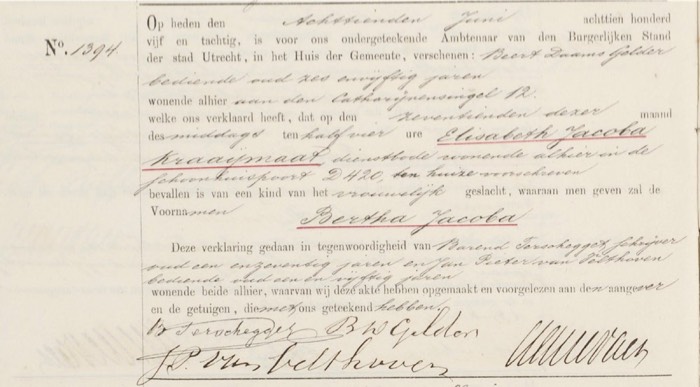 Op heden den Achttienden Juni achttien honderd
Nº. 1394.
vijf en tachtig, is voor ons ondergeteekende Ambtenaar van den Burgerlijken Stand
der stad Utrecht, in het Huis der Gemeente, verschenen: Beert Daams Gelder
bediende oud zes en vijftig jaren
wonende alhier aan den Catharijnensingel 12.
welke ons verklaard heeft, dat op den zeventienden dezer maand
des middags ten half vier ure Elisabeth Jacoba
Kraaijmaat, dienstbode wonende alhier in de
Schoonhuispoort D420, ten huize voorschreven
bevallen is van een kind van het vrouwelijk geslacht, waaraan men geven zal de
Voornamen
Bertha Jacoba
Deze verklaring gedaan in tegenwoordigheid van Barend Terschegget schrijver
oud een en zeventig jaren en Jan Pieter van Velthoven
bediende oud een en vijftig jaren
wonende beide alhier, waarvan wij deze akte hebben opgemaakt en voorgelezen aan den aangever
en de getuigen, die met ons geteekend hebben.
B Terschegger B W Gelder
J. P. van Velthoven